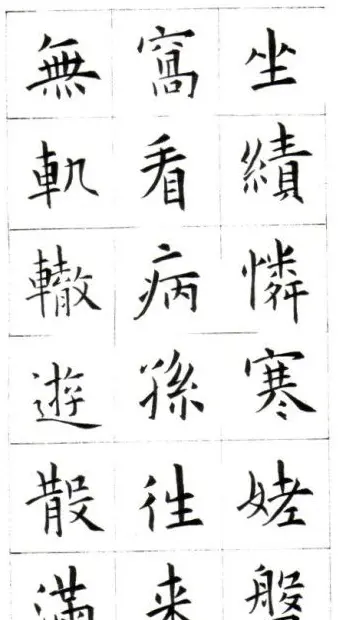 坐績憐寒姥
窩看病孫往来
無軌轍遊散滿